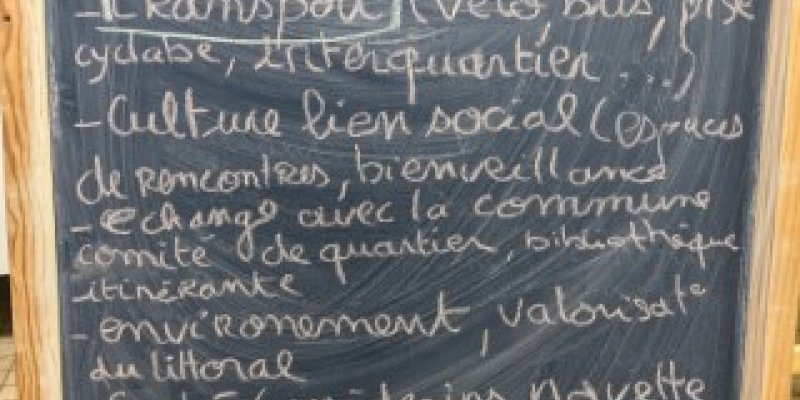 - transport (vélo, bus, piste
cyclabe, interquartier ...)
- Culture lien social (espaces
de rencontres, bienveillance
- echange avec la commune
comité de quartier, bibliothèque
itinérante
- environement, valorisat°
du littoral
navette